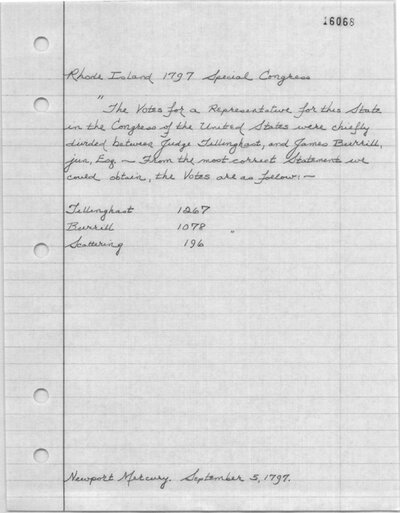 16068
Rhode Island 1797 Special Congress
"The Votes for a Representative for this State
in the Congress of the United States were chiefly
divided between Judge Tillinghast, and James Burrill,
jun, Esq. — From the most correct Statements we
could obtain, the Votes are as follow: —
Tillinghast 1267
Burrill 1078 "
Scattering 196
Newport Mercury. September 5, 1797.